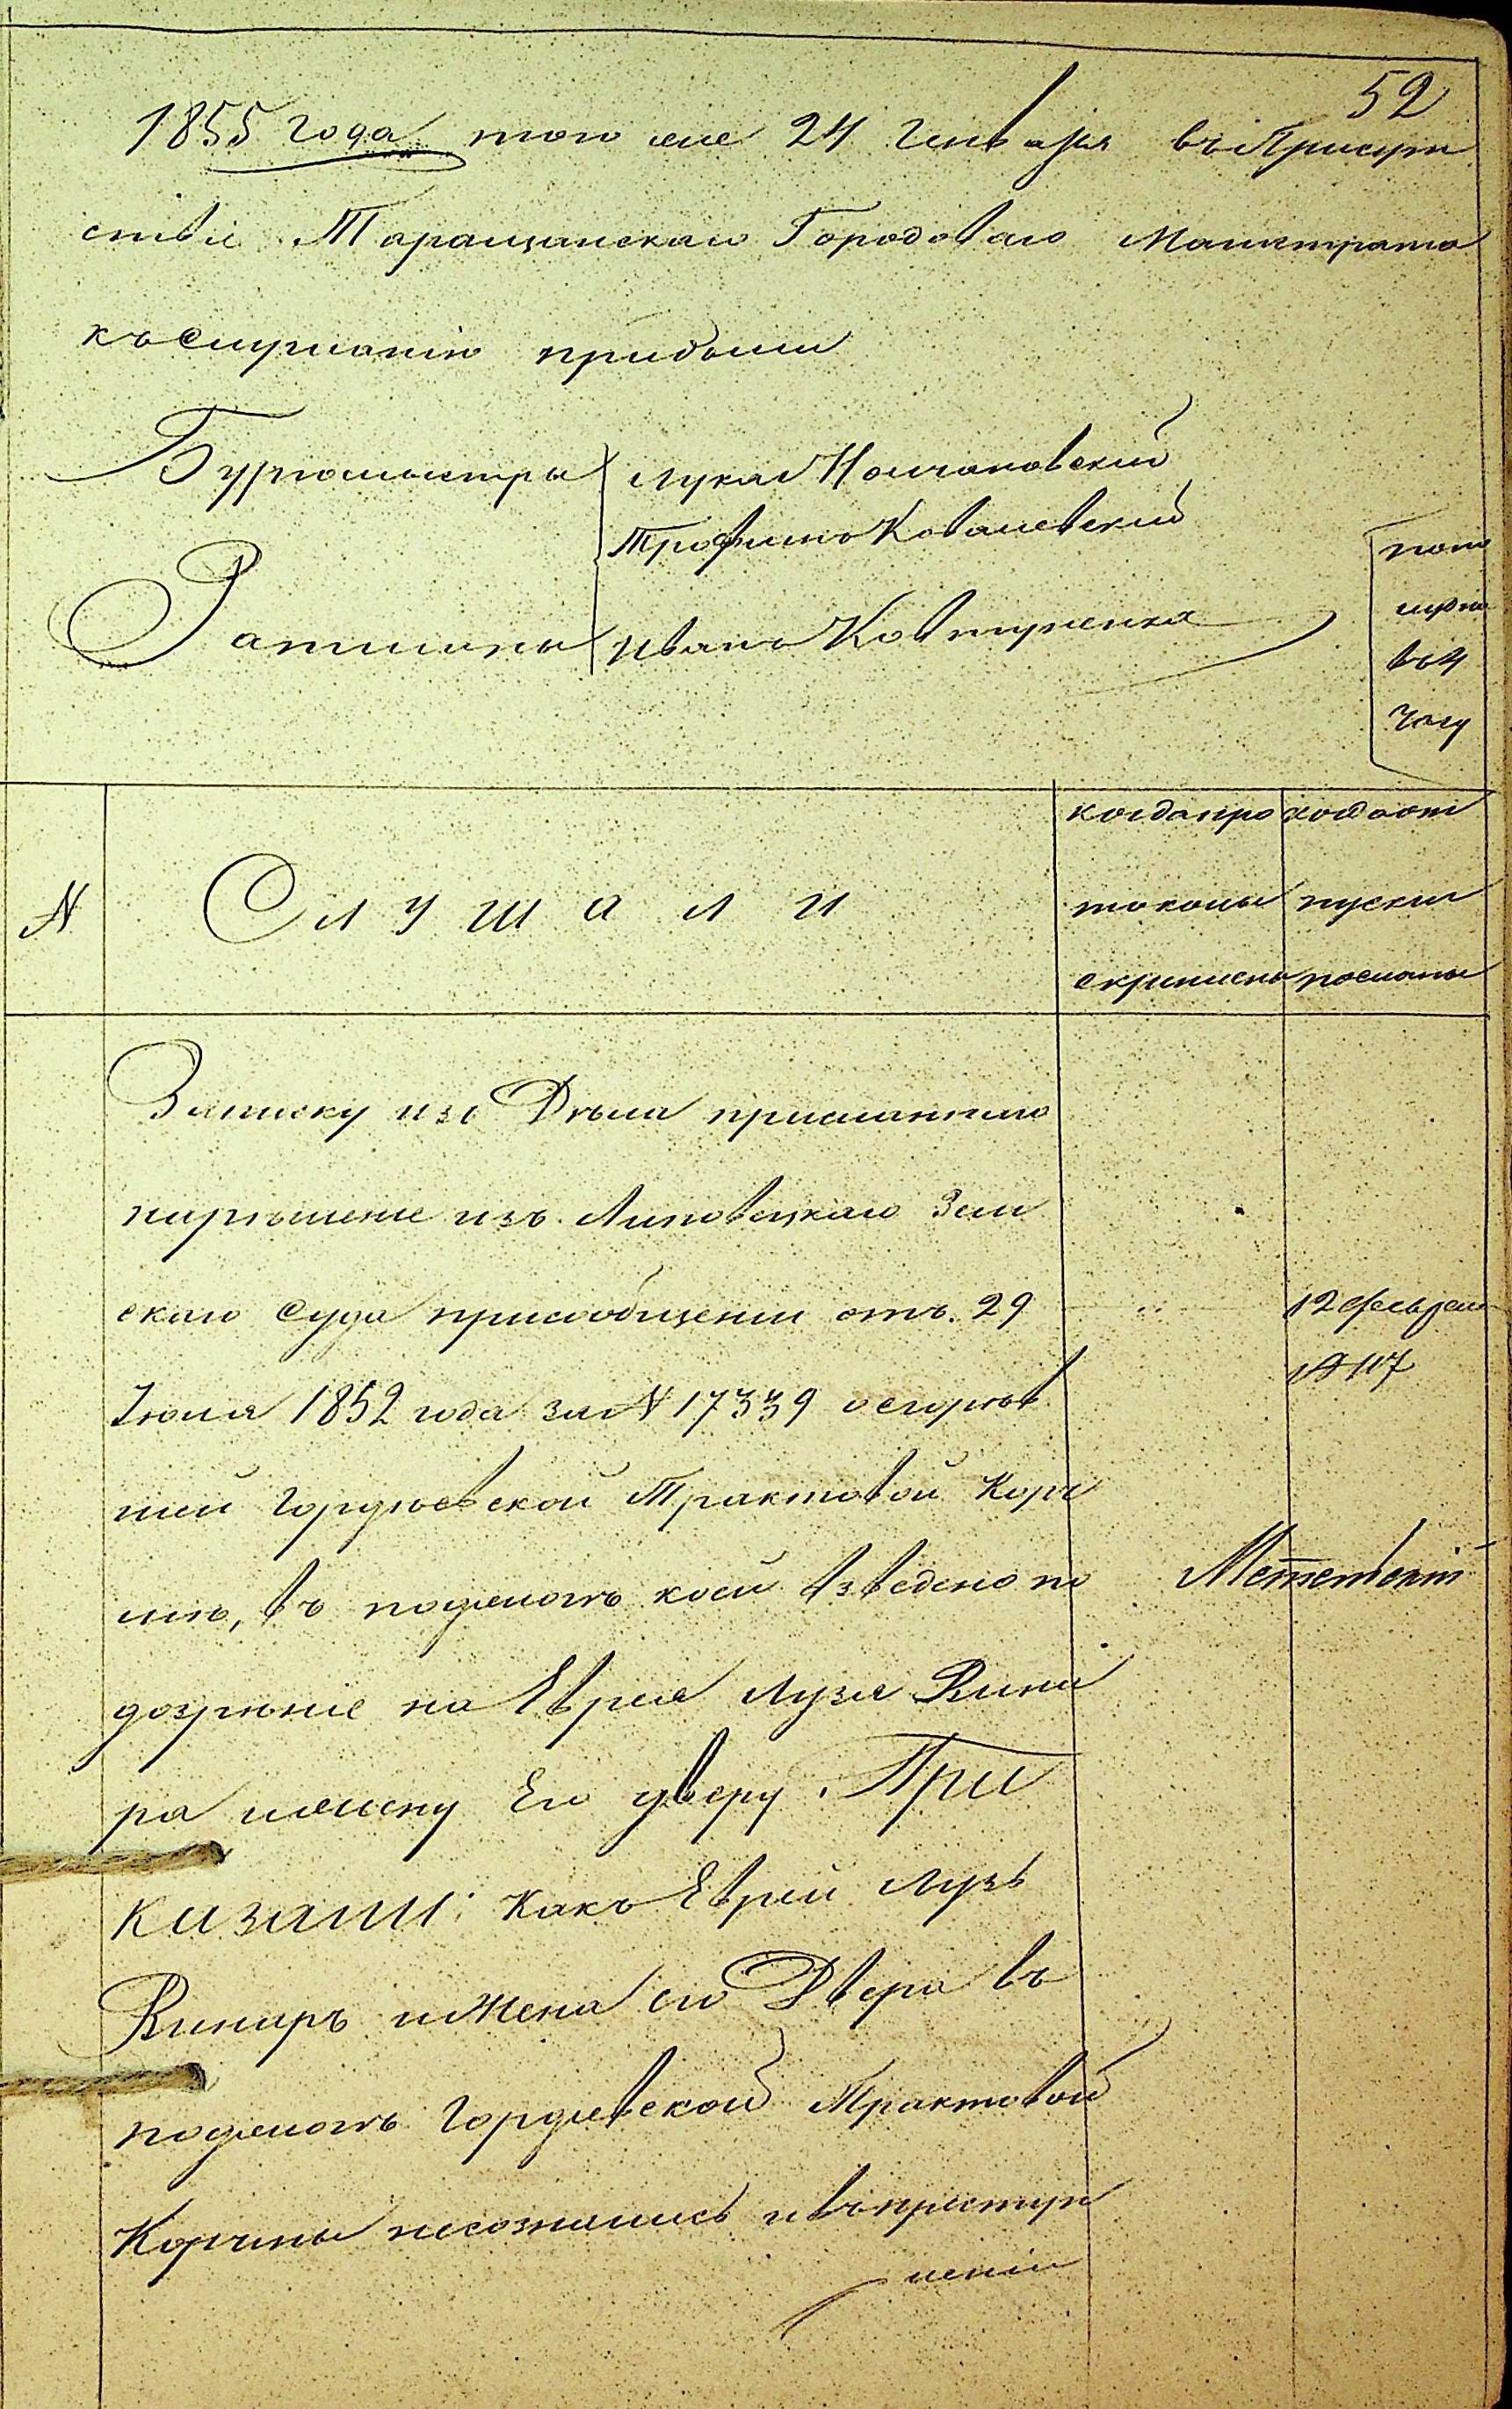 52
1855 года того же 24 Генваря въ Присут
ствіе Таращанскаго Городоваго Магистрата
къ слушанію прибыли
Бургомистры Лукаш Колчановскій
Трофимъ Ковалевскій
Ратманы Иванъ Ковтуненко
по
въ 4
часу
№
Слушали
когда про
токолы
скриплены
когда от
пуски
посланы
Записку изъ Дѣла присланнаго
нарѣшеніе изъ Липовецкаго Зем
скаго Суда присообщеніи отъ 29
12 февраля
№ 117
Іюля 1852 года за № 17339 о сгорѣв
шей Гордѣевской Трактовой Корч
мѣ, въ поджогѣ коей взведено по
дозрѣніе на Еврея Лузя Вина
ра и жену Его Дверу. При
казали: Какъ Еврей Лузь
Винаръ и Жена его Двера въ
поджогѣ Гордѣевской Трактовой
Корчмы несознались и въ преступ
леніи